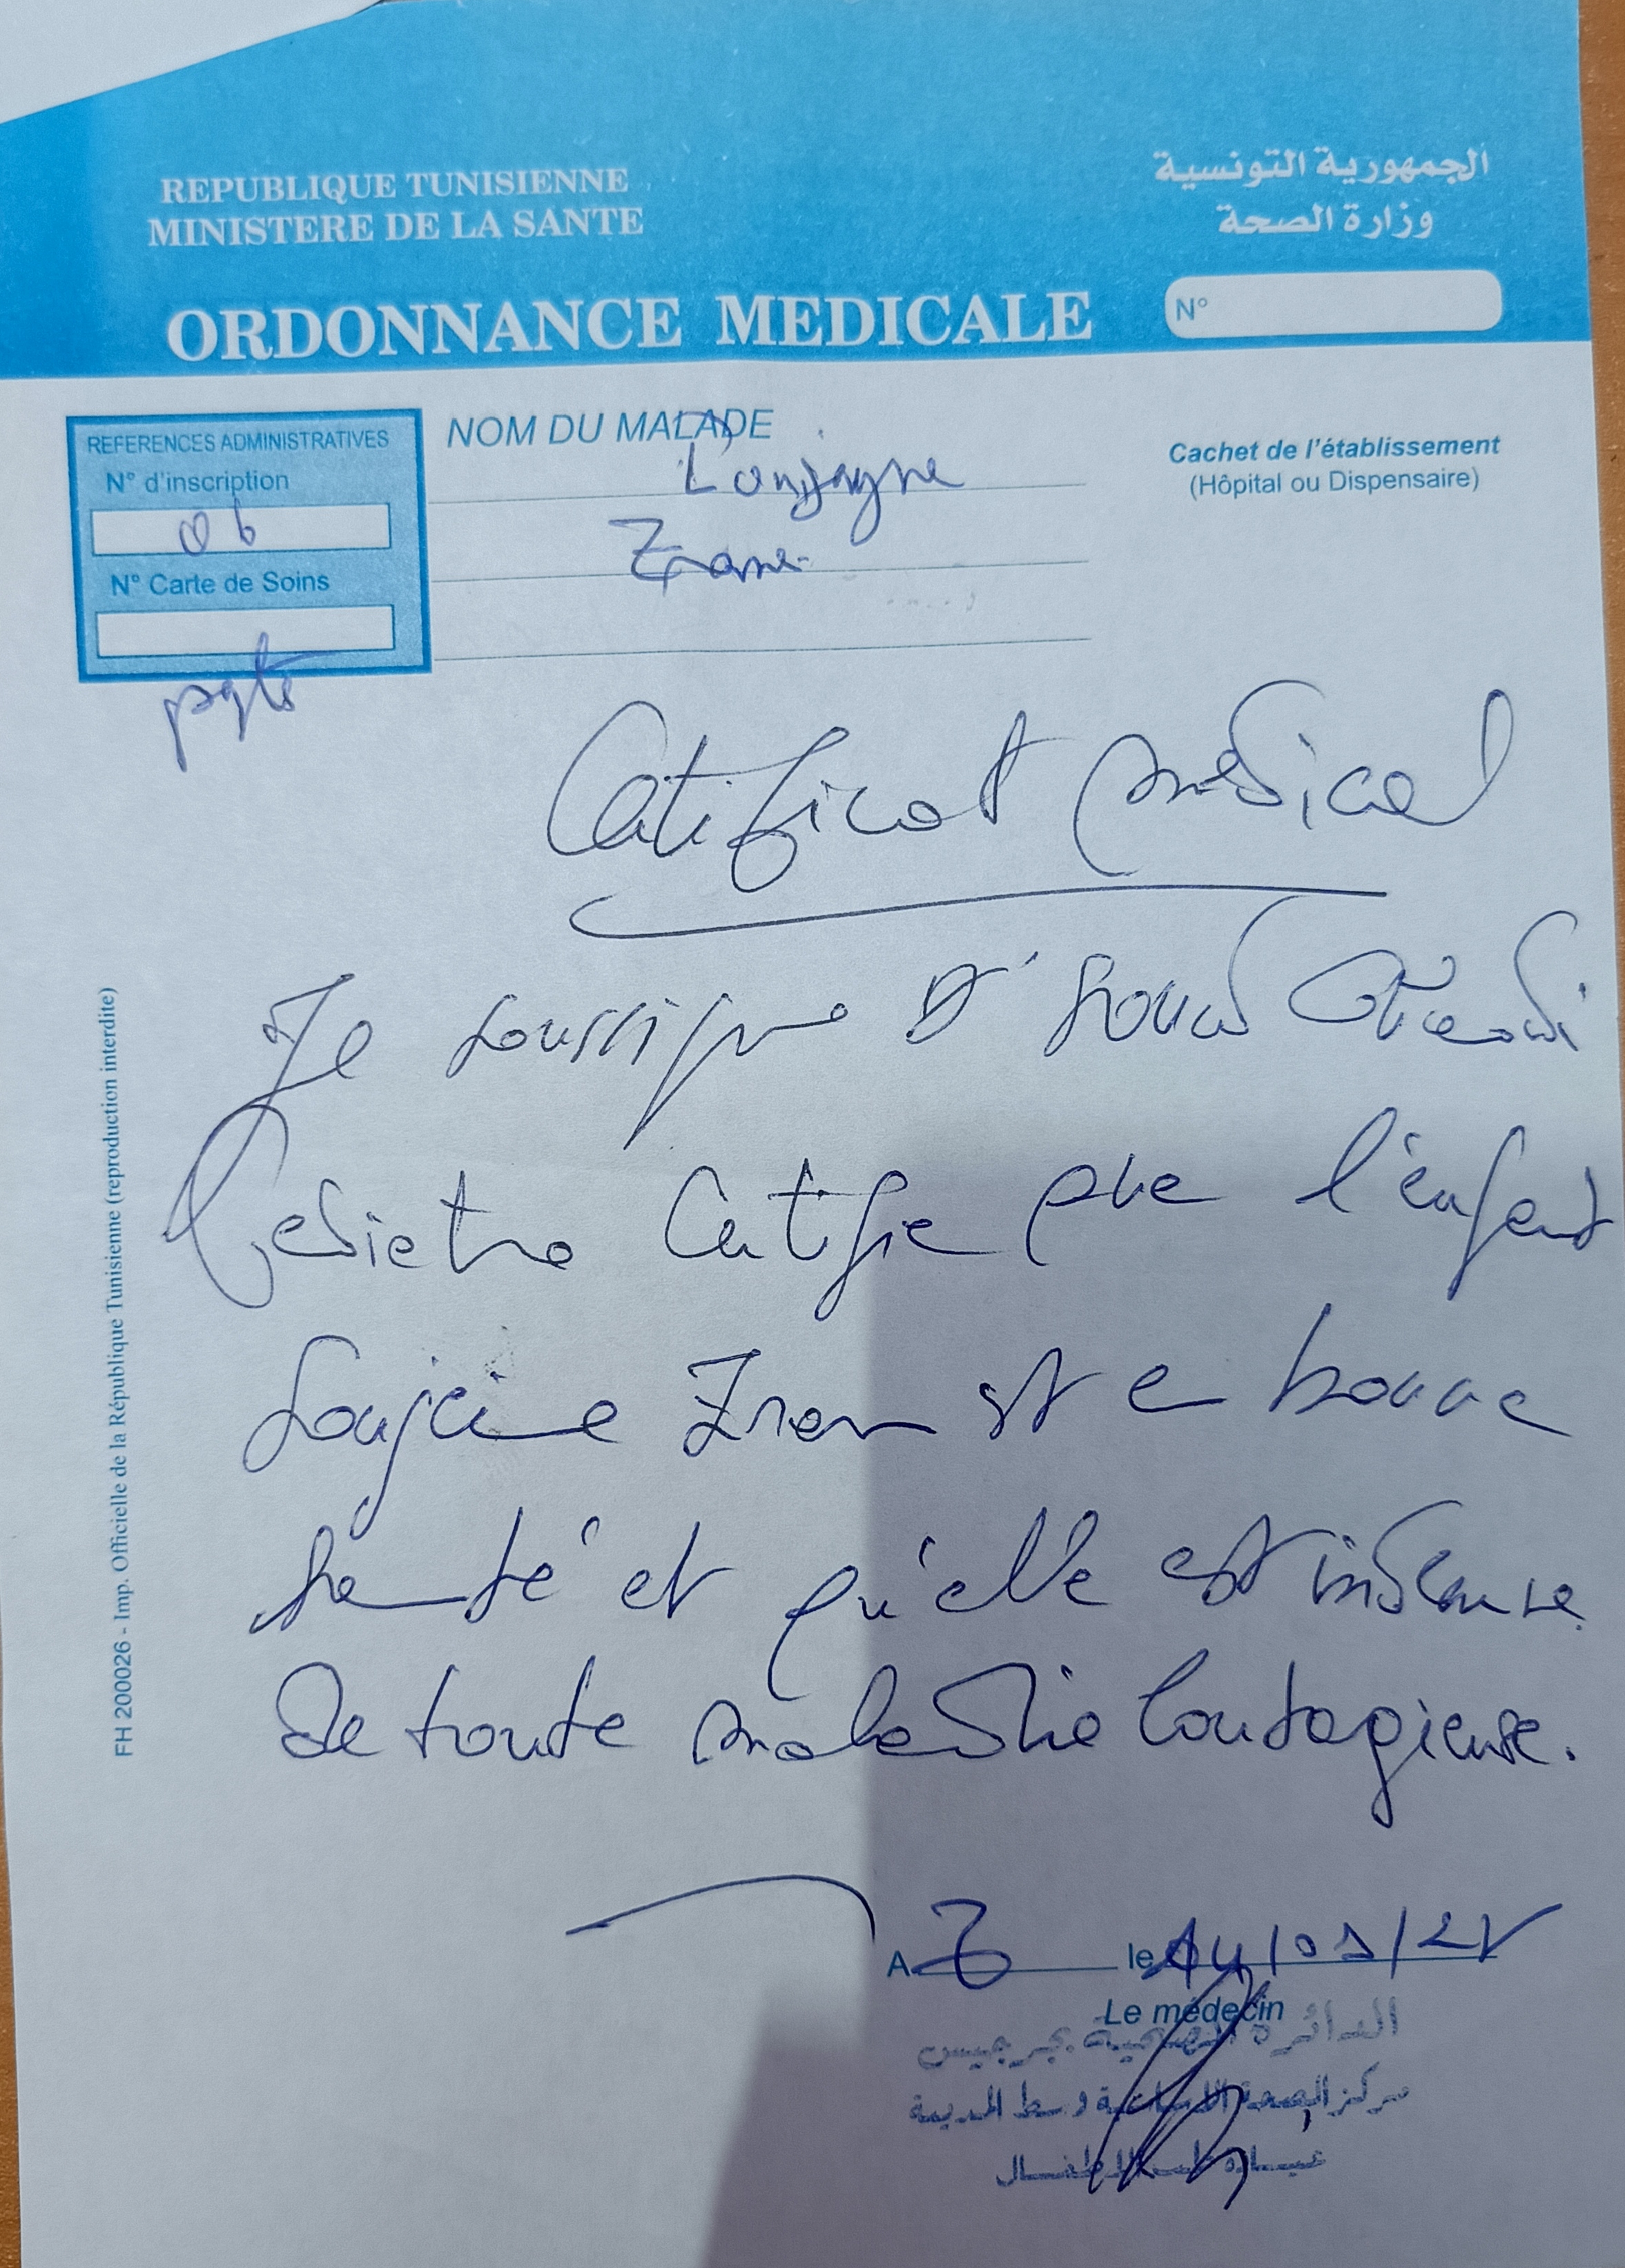 REPUBLIQUE TUNISIENNE
MINISTERE DE LA SANTE
الجمهورية التونسية
وزارة الصحة
ORDONNANCE MEDICALE
N°
REFERENCES ADMINISTRATIVES
N° d'inscription
06
N° Carte de Soins
NOM DU MALADE
Cachet de l'établissement
(Hôpital ou Dispensaire)
Certificat médical
Je soussigné Dr
Pediatre Certifie que l'enfant
Loujeine Zran est en bonne
santé et qu'elle est indemne
de toute maladie Contagieuse.
FH 200026 - Imp. Officielle de la République Tunisienne (reproduction interdite)
A Z le 14/09/
Le médecin
الدائرة الصحية بجرجيس
مركز الصحة الاساسية وسط المدينة
عيادة طب الاطفال